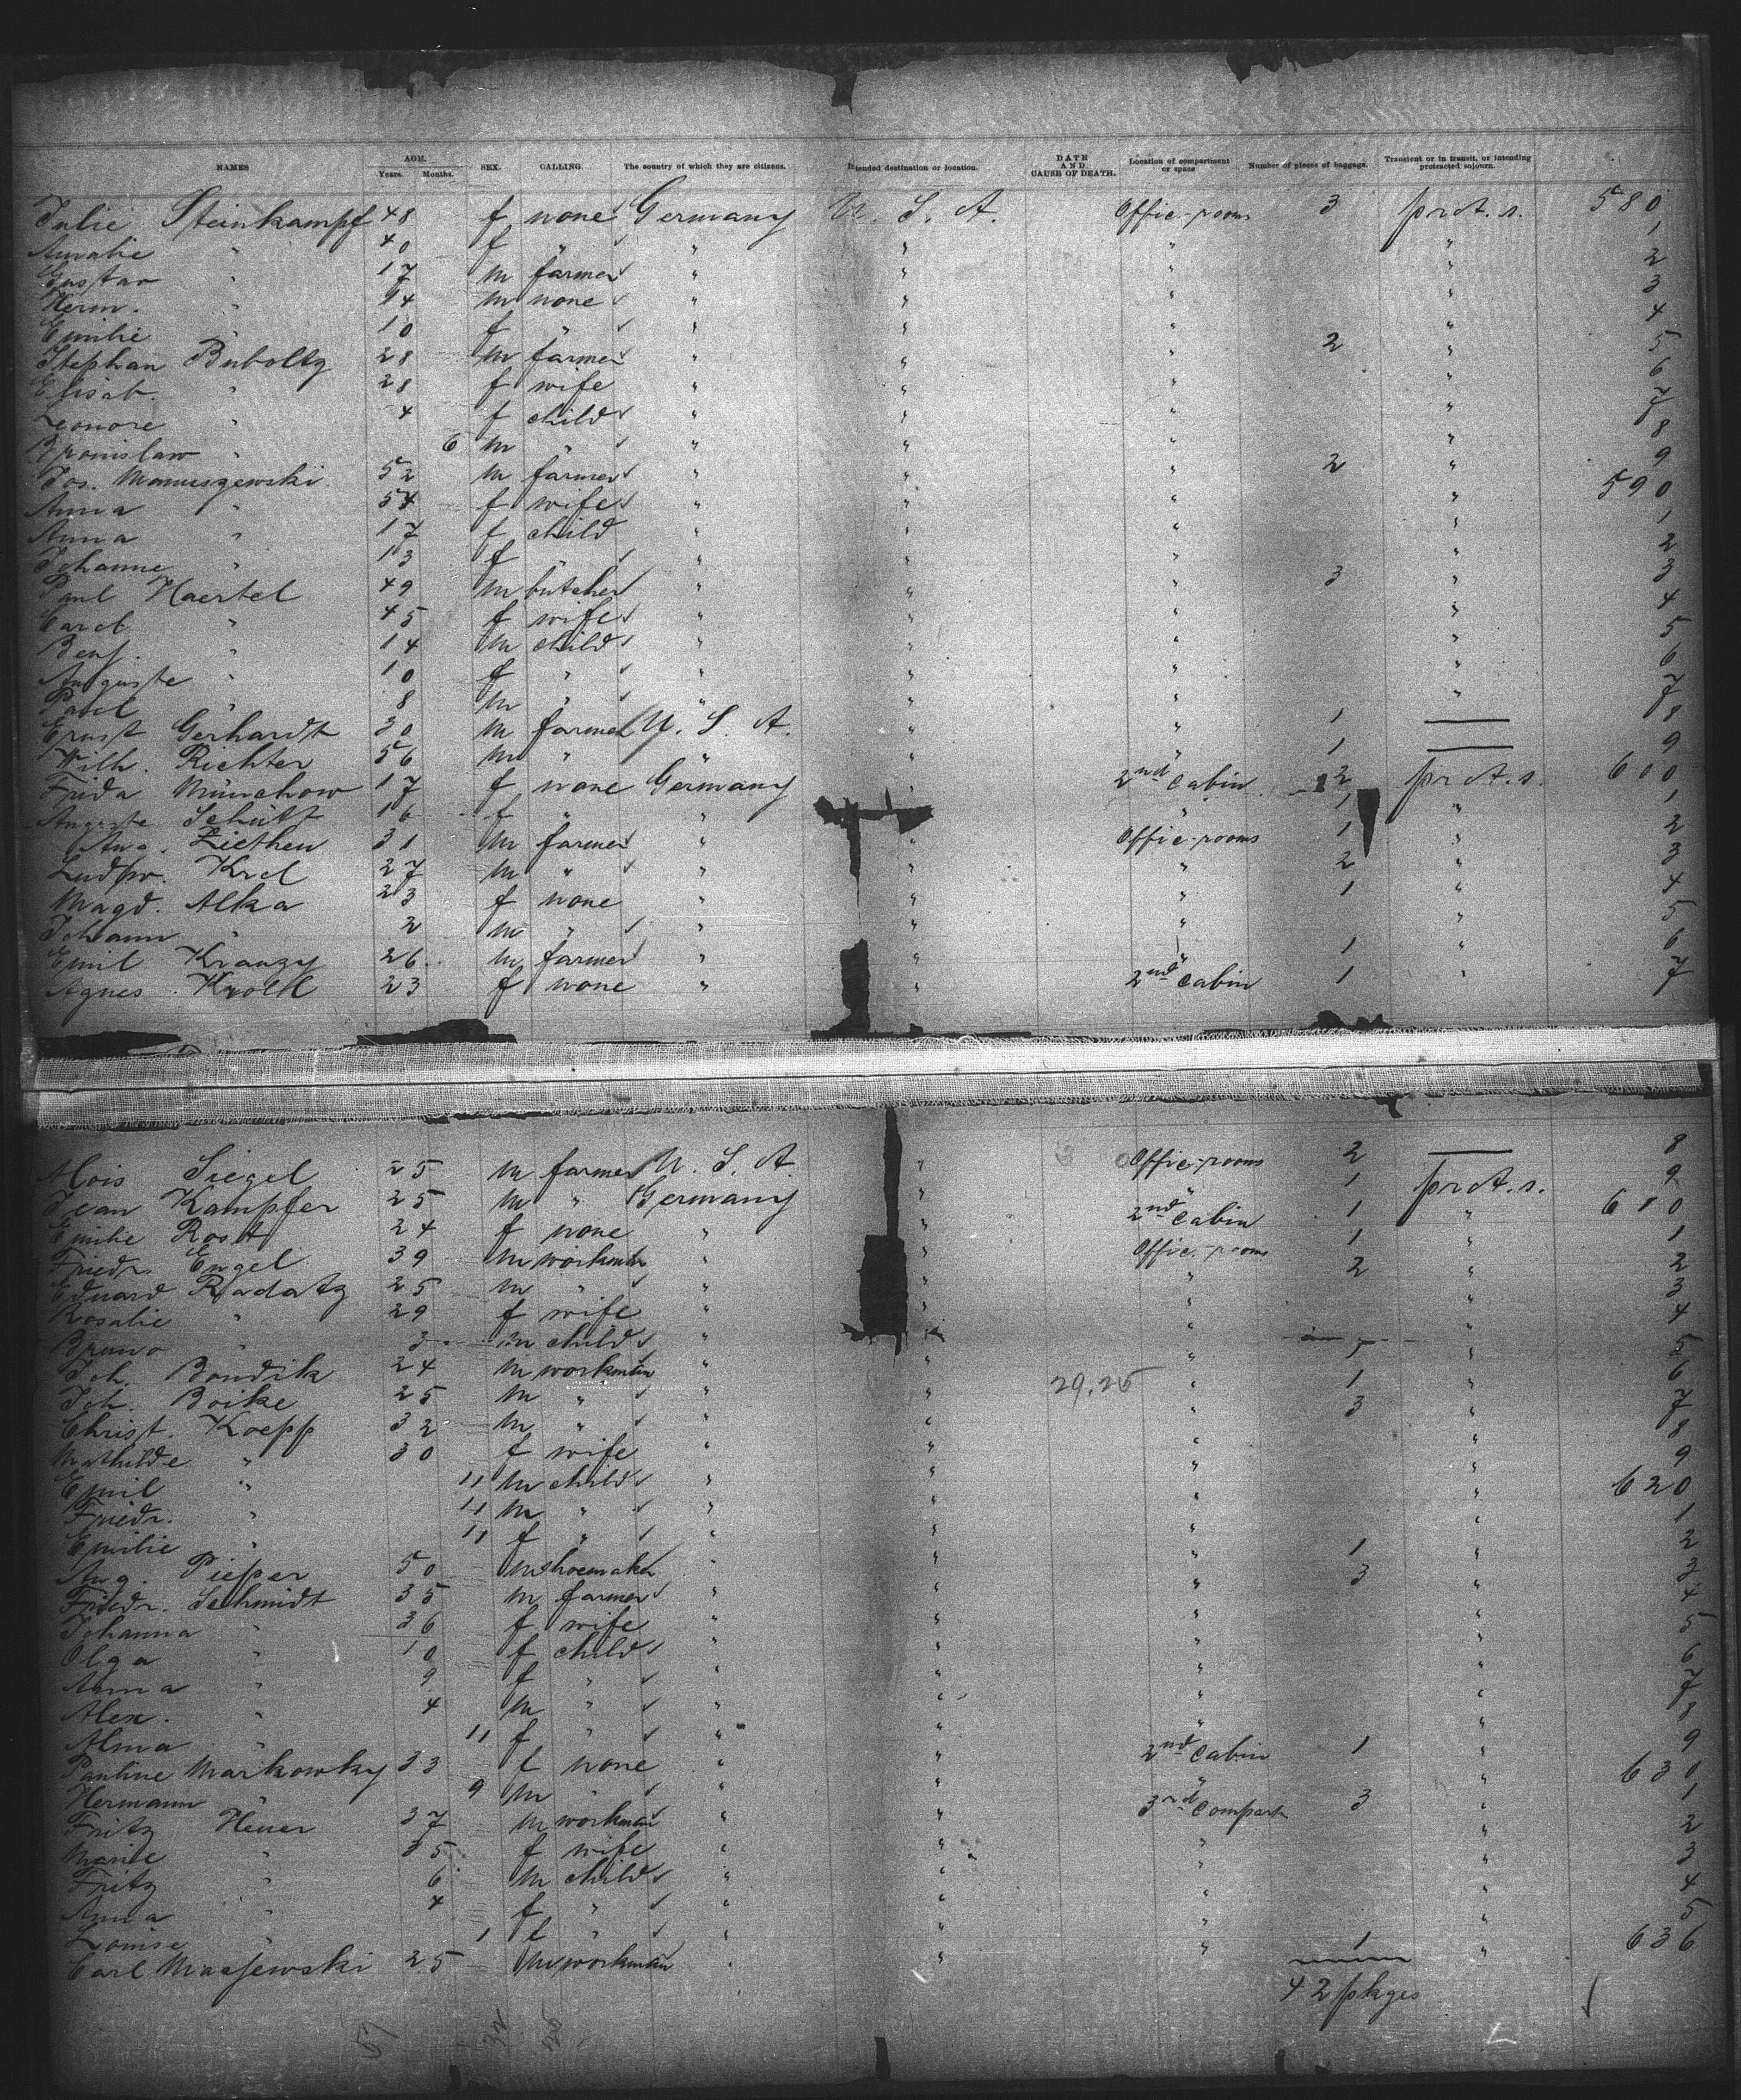 NAMES AGE. Years. Months. SEX. CALLING. The country of which they are citizens. Intended destination or location. DATE AND CAUSE OF DEATH. Location of compartment or space Number of pieces of baggage. Transient or in transit, or intending protracted sojourn.
Julie Steinkampf 48 f none Germany U. S. A. Offic-rooms 3 prot. s. 580
Amalie " 40 f " " " " " 1
Gustav " 17 m farmer " " " " 2
Herm. " 14 m none " " " " 3
Emilie " 10 f " " " " " 4
Stephan Buboltz 28 m farmer " " " 2 " 5
Elisab. " 28 f wife " " " " 6
Leonore " 4 f child " " " " 7
Bronislaw " 6 m " " " " " 8
Jos. Manuszewski 52 m farmer " " " 2 " 9
Anna " 54 f wife " " " " 590
Anna " 17 f child " " " " 1
Johanne " 13 f " " " " " 2
Paul Haertel 49 m butcher " " " 3 " 3
Carol. " 45 f wife " " " " 4
Benj. " 14 m child " " " " 5
Auguste " 10 f " " " " " 6
Paul " 8 m " " " " " 7
Ernst Gerhardt 30 m farmer U. S. A. " " 1 — 8
Wilh. Richter 56 m " " " " 1 — 9
Frida Münchow 17 f none Germany " 2nd Cabin 2 prot. s. 600
Auguste Schütt 16 f " " " " 1 " 1
Aug. Ziethen 31 m farmer " " Offic-rooms 1 " 2
Ludw. Krel 27 m " " " " 2 " 3
Magd. Alka 23 f none " " " 1 " 4
Johann " 2 m " " " " " 5
Emil Kranzy 26 m farmer " " " 1 " 6
Agnes Kroll 23 f none " " 2nd Cabin 1 " 7
Alois Siegel 25 m farmer U. S. A " Offic-rooms 2 — 8
Jean Kampfer 25 m " Germany " " 1 prot. s. 9
Emilie Rost 24 f none " " 2nd Cabin 1 " 610
Friedr. Engel 39 m workman " " Offic-rooms 1 " 1
Eduard Radatz 25 m " " " " 2 " 2
Rosalie " 29 f wife " " " " 3
Bruno " 3 m child " " " " 4
Joh. Bondik 24 m workman " " " " 5
Joh. Boike 25 m " " " 29.25 " 1 " 6
Christ. Koepp 32 m " " " " 3 " 7
Mathilde " 30 f wife " " " " 8
Emil " 11 m child " " " " 9
Friedr. " 11 m " " " " " 620
Emilie " 11 f " " " " " 1
Aug. Pieper 50 m shoemaker " " " 1 " 2
Friedr. Schmidt 35 m farmer " " " 3 " 3
Johanna " 36 f wife " " " " 4
Olga " 10 f child " " " " 5
Anna " 9 f " " " " " 6
Alex. " 4 m " " " " " 7
Alma " 11 f " " " " " 8
Pauline Markowky 33 f none " " 2nd Cabin 1 " 9
Hermann " 9 m " " " " " 630
Fritz Heuer 37 m workman " " 3rd Compart 3 " 1
Marie " 35 f wife " " " " 2
Fritz " 6 m child " " " " 3
Anna " 4 f " " " " " 4
Louise " 1 f " " " " " 5
Carl Maajewski 25 m workman " " " 1 " 636
42 pkges